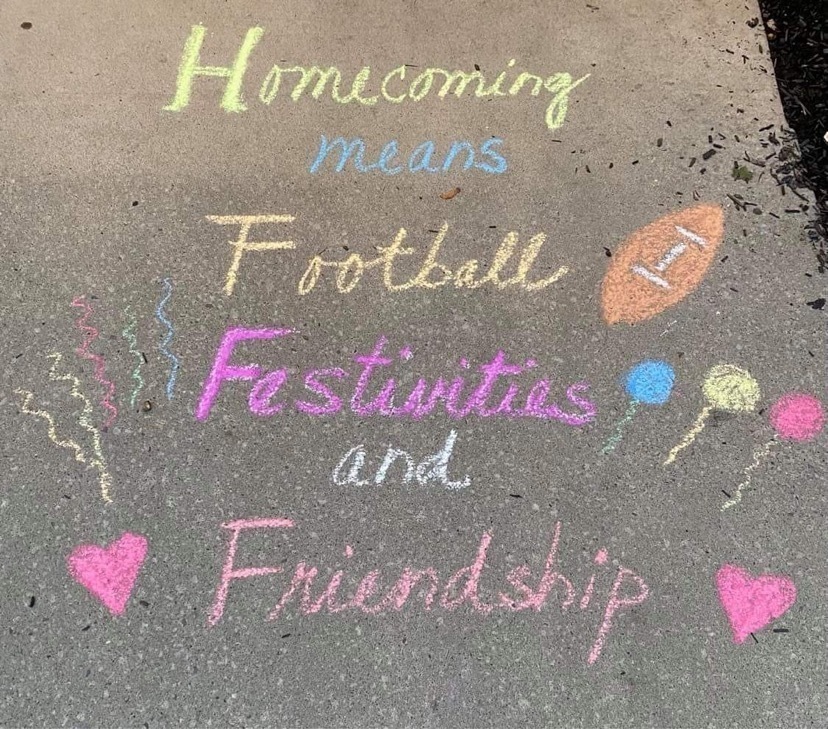 Homecoming
means
Football
Festivities
and
Friendship